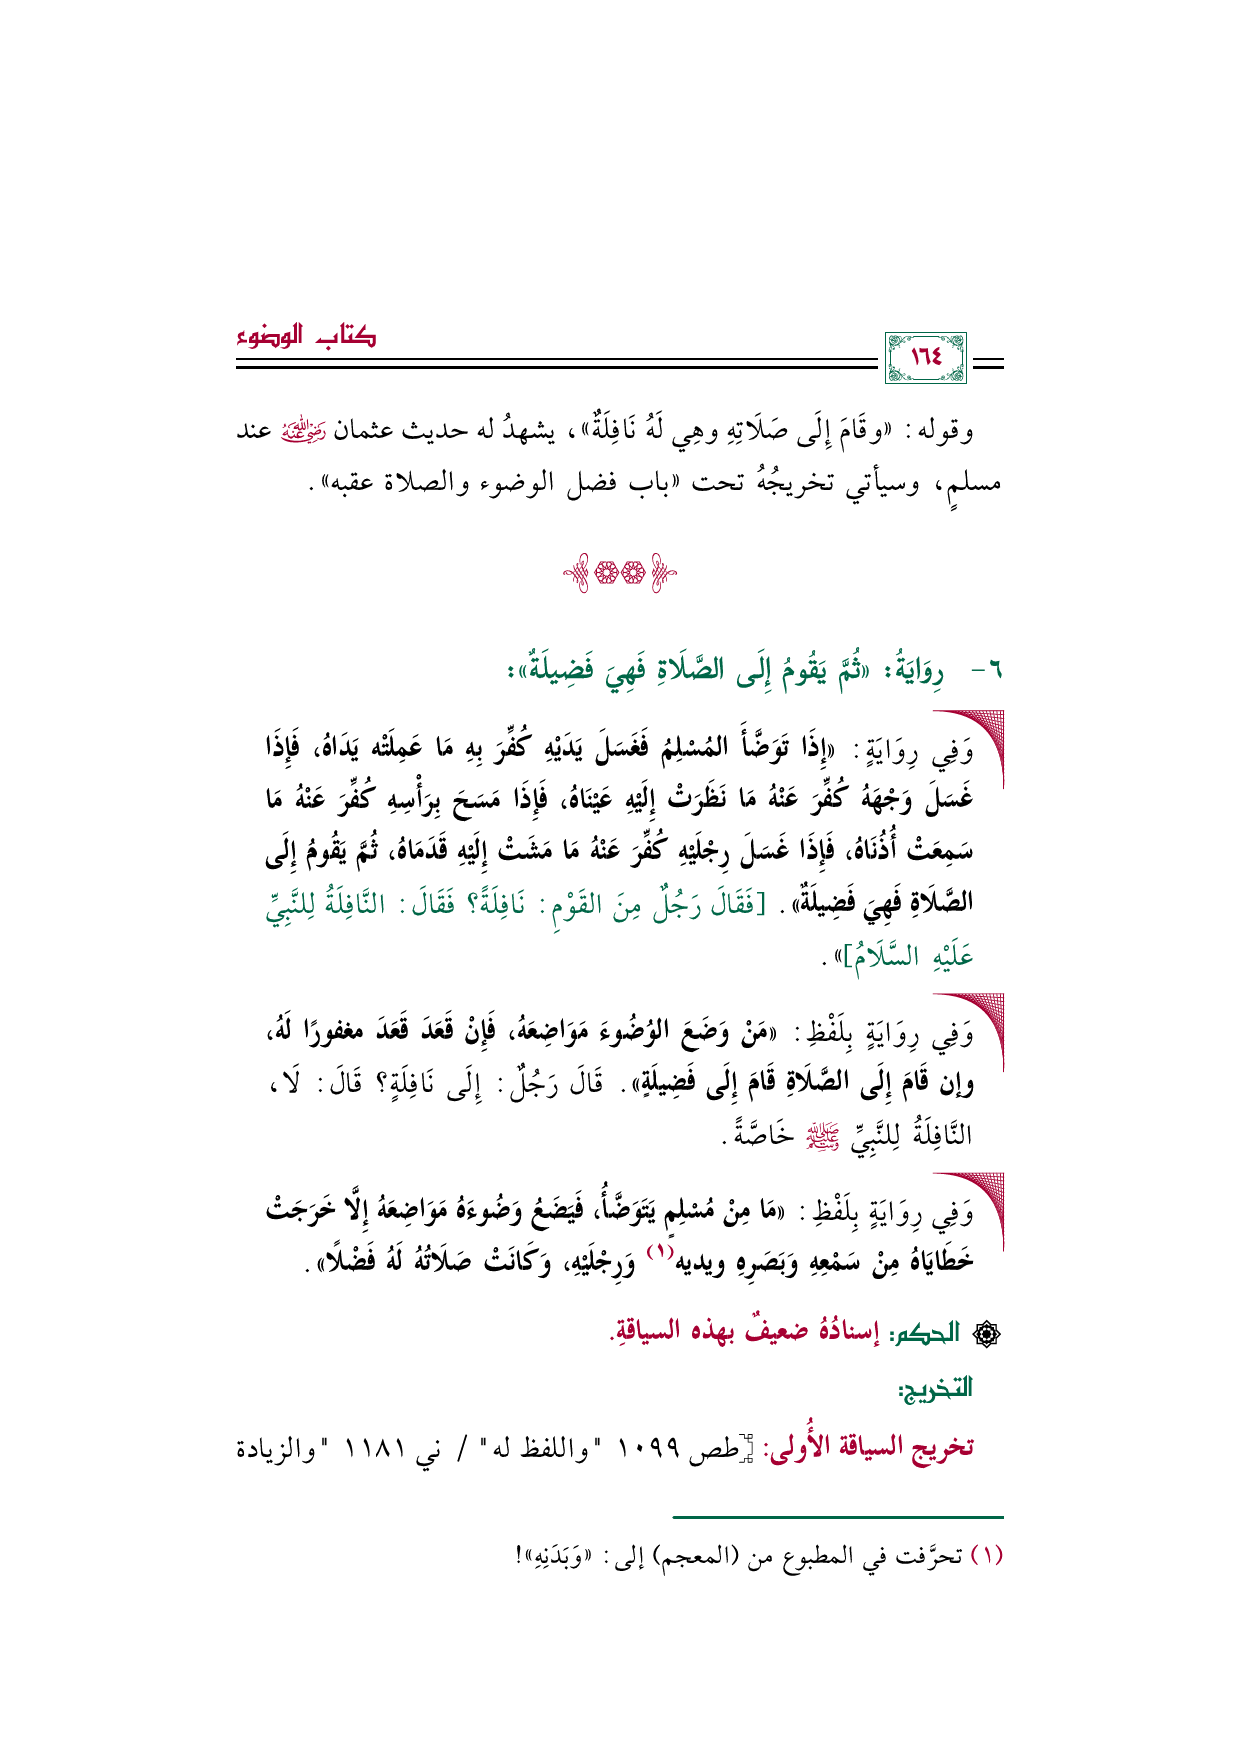 كتاب الوضوء
١٦٤
وقوله: «وقَامَ إِلَى صَلَاتِهِ وهِي لَهُ نَافِلَةٌ»، يشهدُ له حديث عثمان رَضِيَ اللَّهُ عَنْهُ عند
مسلمٍ، وسيأتي تخريجُهُ تحت «باب فضل الوضوء والصلاة عقبه».
٦- رِوَايَةُ: «ثُمَّ يَقُومُ إِلَى الصَّلَاةِ فَهِيَ فَضِيلَةٌ»:
وَفِي رِوَايَةٍ: «إِذَا تَوَضَّأَ المُسْلِمُ فَغَسَلَ يَدَيْهِ كُفِّرَ بِهِ مَا عَمِلَتْه يَدَاهُ، فَإِذَا
غَسَلَ وَجْهَهُ كُفِّرَ عَنْهُ مَا نَظَرَتْ إِلَيْهِ عَيْنَاهُ، فَإِذَا مَسَحَ بِرَأْسِهِ كُفِّرَ عَنْهُ مَا
سَمِعَتْ أُذُنَاهُ، فَإِذَا غَسَلَ رِجْلَيْهِ كُفِّرَ عَنْهُ مَا مَشَتْ إِلَيْهِ قَدَمَاهُ، ثُمَّ يَقُومُ إِلَى
الصَّلَاةِ فَهِيَ فَضِيلَةٌ». [فَقَالَ رَجُلٌ مِنَ القَوْمِ: نَافِلَةً؟ فَقَالَ: النَّافِلَةُ لِلنَّبِيِّ
عَلَيْهِ السَّلَامُ]».
وَفِي رِوَايَةٍ بِلَفْظِ: «مَنْ وَضَعَ الوُضُوءَ مَوَاضِعَهُ، فَإِنْ قَعَدَ قَعَدَ مغفورًا لَهُ،
وإن قَامَ إِلَى الصَّلَاةِ قَامَ إِلَى فَضِيلَةٍ». قَالَ رَجُلٌ: إِلَى نَافِلَةٍ؟ قَالَ: لَا،
النَّافِلَةُ لِلنَّبِيِّ ﷺ خَاصَّةً.
وَفِي رِوَايَةٍ بِلَفْظِ: «مَا مِنْ مُسْلِمٍ يَتَوَضَّأُ، فَيَضَعُ وَضُوءَهُ مَوَاضِعَهُ إِلَّا خَرَجَتْ
خَطَايَاهُ مِنْ سَمْعِهِ وَبَصَرِهِ ويديه(١) وَرِجْلَيْهِ، وَكَانَتْ صَلَاتُهُ لَهُ فَضْلًا».
الحكم: إسنادُهُ ضعيفٌ بهذه السياقةِ.
التخريج:
تخريج السياقة الأُولى: [طص ١٠٩٩ "واللفظ له" / ني ١١٨١ "والزيادة
(١) تحرَّفت في المطبوع من (المعجم) إلى: «وَبَدَنِهِ»!